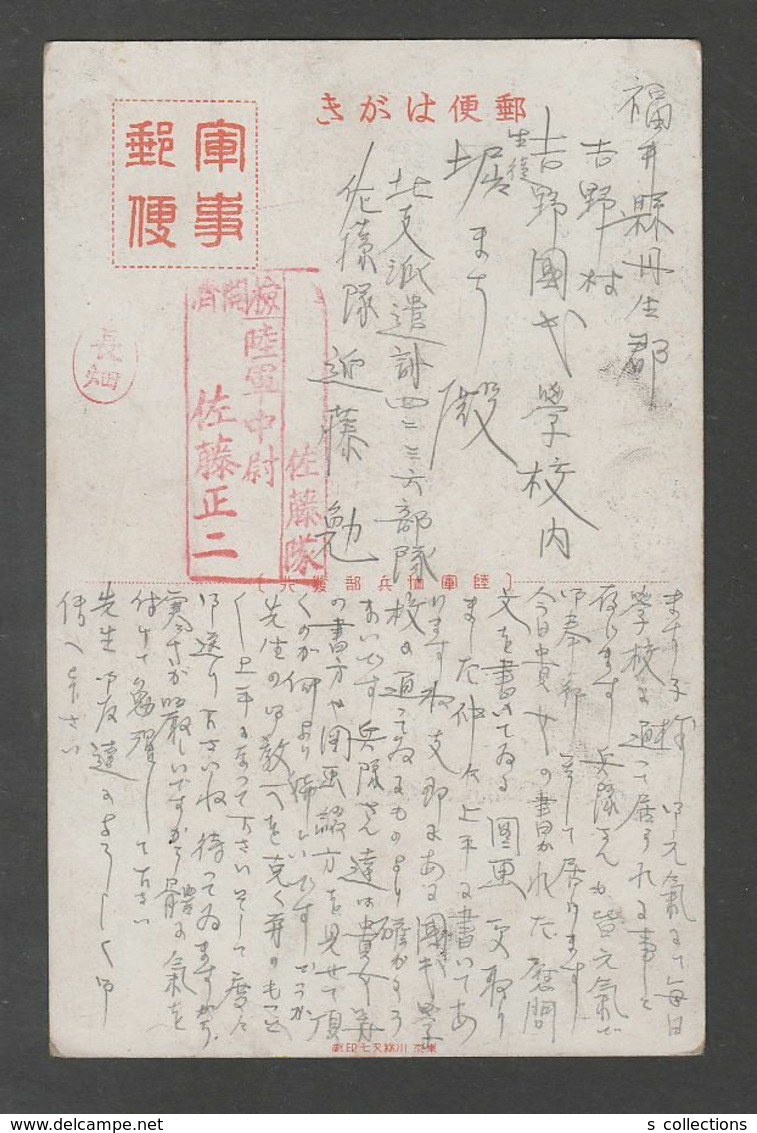 郵便はがき
軍事
郵便
福井縣丹生郡
吉野村
吉野國民學校内
生徒
堀まち殿
北支派遣討四二三六部隊
佐藤隊 近藤勉
檢閲濟
佐藤隊
陸軍中尉
佐藤正二
長畑
まち子様 御元氣にて毎日
學校に通って居られる事と
存じます 兵隊さんも皆元氣で
御奉公して居ります
今日貴女の書かれた慰問
文を書いてゐる圖画受取り
ました仲々上手に書いてあ
りますね支那にある國民學
校に通ってゐるものより確かにう
まいです 兵隊さん達は貴女等
の書方や圖画綴方を見せて頂
くのが何より嬉しいですどうか
先生の御教へを克く守りもっと
上手になって下さいそして度々
御送り下さいね 待ってゐますから
寒さが嚴しいですから體に氣を
付けて勉强して下さい
先生御友達によろしく御
傳へ下さい
s collections
www.delcampe.net